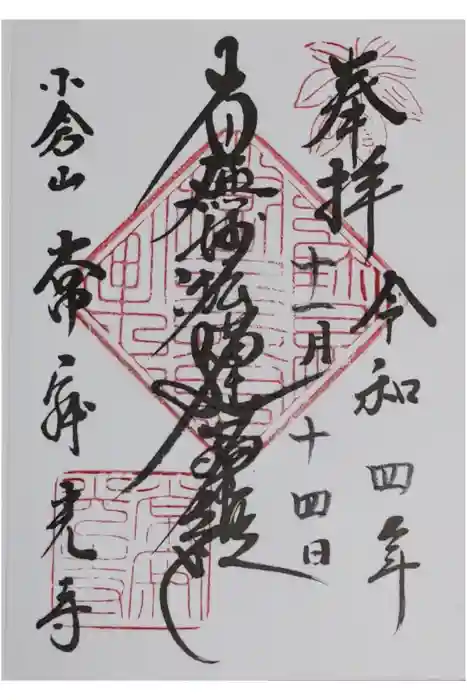 奉拝
令和四年
十一月十四日
南無妙法蓮華経
小倉山
常寂光寺